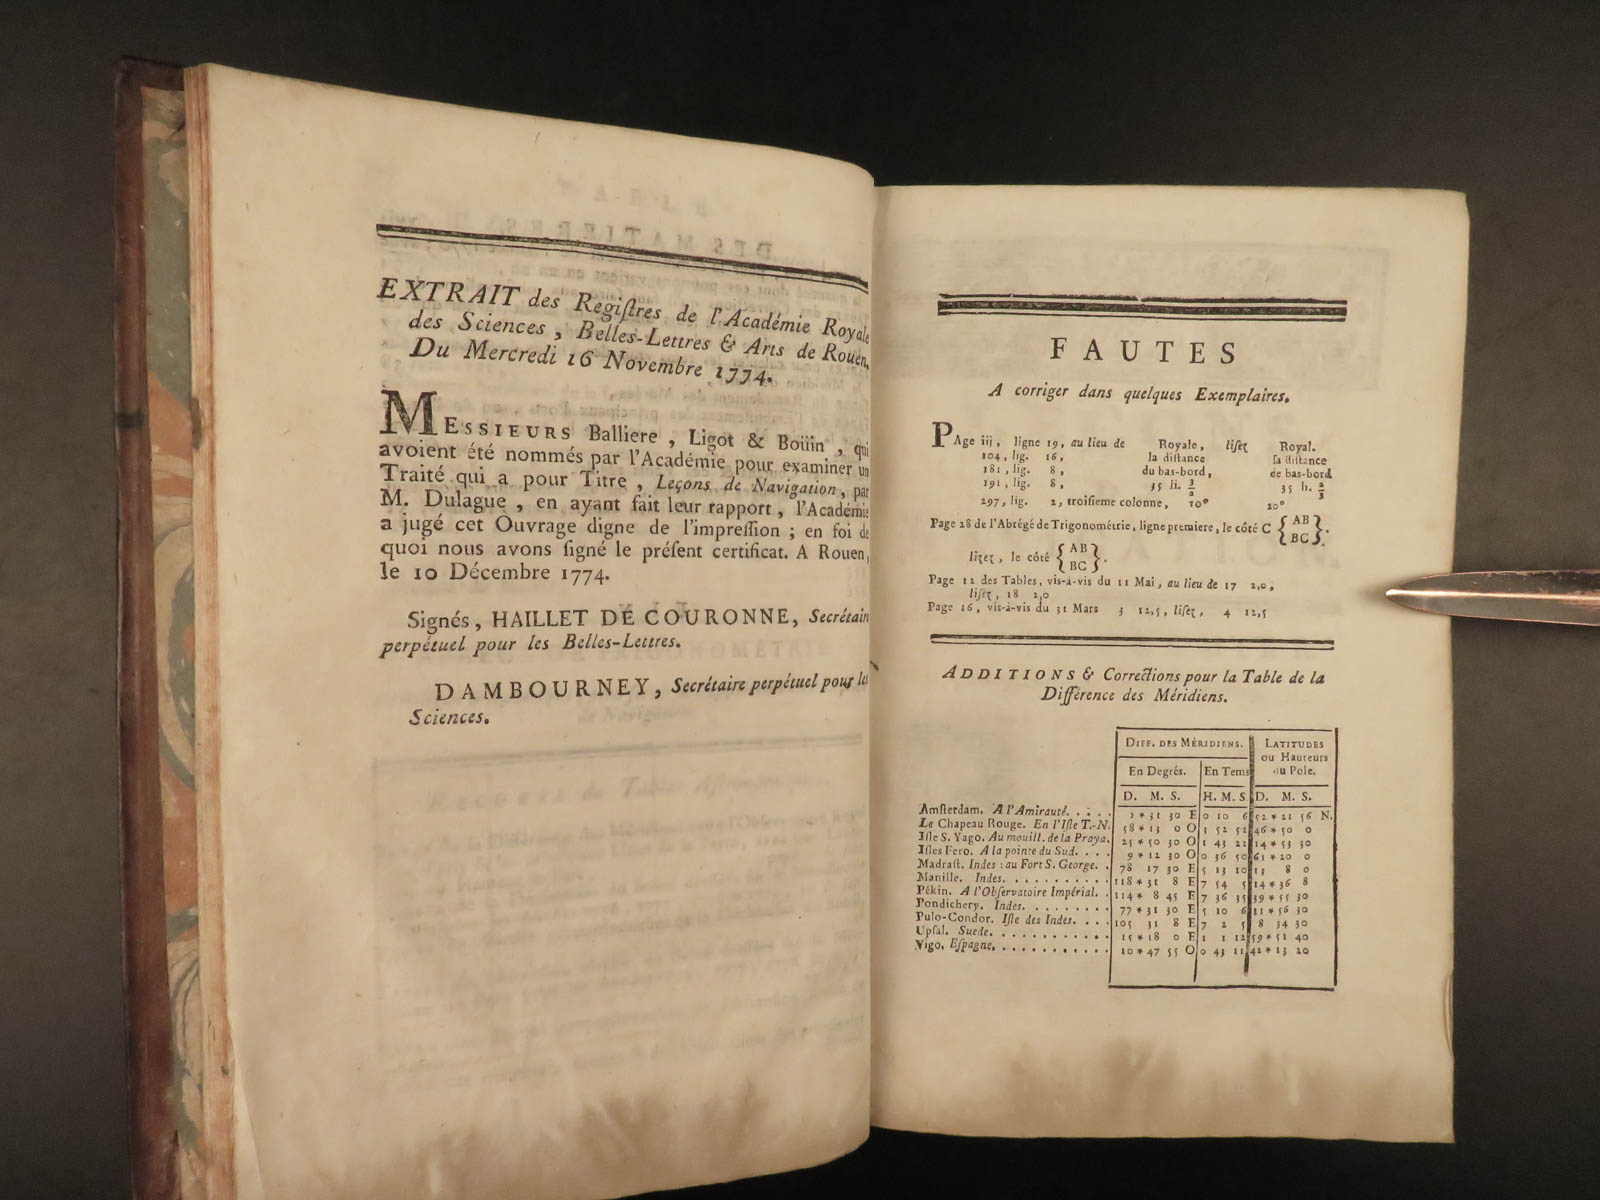 EXTRAIT des Regiſtres de l'Académie Royale
des Sciences, Belles-Lettres & Arts de Rouen.
Du Mercredi 16 Novembre 1774.
MESSIEURS Balliere, Ligot & Boüin, qui
avoient été nommés par l'Académie pour examiner un
Traité qui a pour Titre, Leçons de Navigation, par
M. Dulague, en ayant fait leur rapport, l'Académie
a jugé cet Ouvrage digne de l'impreſſion; en foi de
quoi nous avons ſigné le préſent certificat. A Rouen,
le 10 Décembre 1774.
Signés, HAILLET DE COURONNE, Secrétaire
perpétuel pour les Belles-Lettres.
DAMBOURNEY, Secrétaire perpétuel pour les
Sciences.
FAUTES
A corriger dans quelques Exemplaires.
PAge iij, ligne 19, au lieu de Royale, liſez Royal.
104, lig. 16, la diſtance ſa diſtance
181, lig. 8, du bas-bord, de bas-bord
191, lig. 8, 35 li. 35 h.
297, lig. 2, troiſieme colonne, 10° 20°
Page 28 de l'Abrégé de Trigonométrie, ligne premiere, le côté C { AB BC }.
liſez, le côté { AB BC }.
Page 12 des Tables, vis-à-vis du 11 Mai, au lieu de 17 2,0,
liſez, 18 2,0
Page 16, vis-à-vis du 31 Mars 3 12,5, liſez, 4 12,5
ADDITIONS & Corrections pour la Table de la
Différence des Méridiens.
DIFF. DES MÉRIDIENS. LATITUDES
ou Hauteurs
du Pole.
En Degrés. En Tems
D. M. S. H. M. S. D. M. S.
Amſterdam. A l'Amirauté. 2 * 31 30 E 0 10 6 52 * 21 56 N.
Le Chapeau Rouge. En l'Iſle T.-N. 58 * 13 0 O 3 52 52 46 * 50 0
Iſle S. Yago. Au mouill. de la Praya. 25 * 50 30 O 1 43 22 14 * 53 30
Iſles Fero. A la pointe du Sud. 9 * 12 30 O 0 36 50 61 * 20 0
Madraſt. Indes: au Fort S. George. 78 17 30 E 5 13 10 13 8 0
Manille. Indes. 118 * 31 8 E 7 54 5 14 * 36 8
Pékin. A l'Obſervatoire Impérial. 114 * 8 45 E 7 36 35 39 * 55 30
Pondichery. Indes. 77 * 31 30 E 5 10 6 11 * 56 30
Pulo-Condor. Iſle des Indes. 105 31 8 E 7 2 5 8 34 30
Upſal. Suede. 15 * 18 0 E 1 1 12 59 * 51 40
Vigo. Eſpagne. 10 * 47 55 O 0 43 11 42 * 13 20